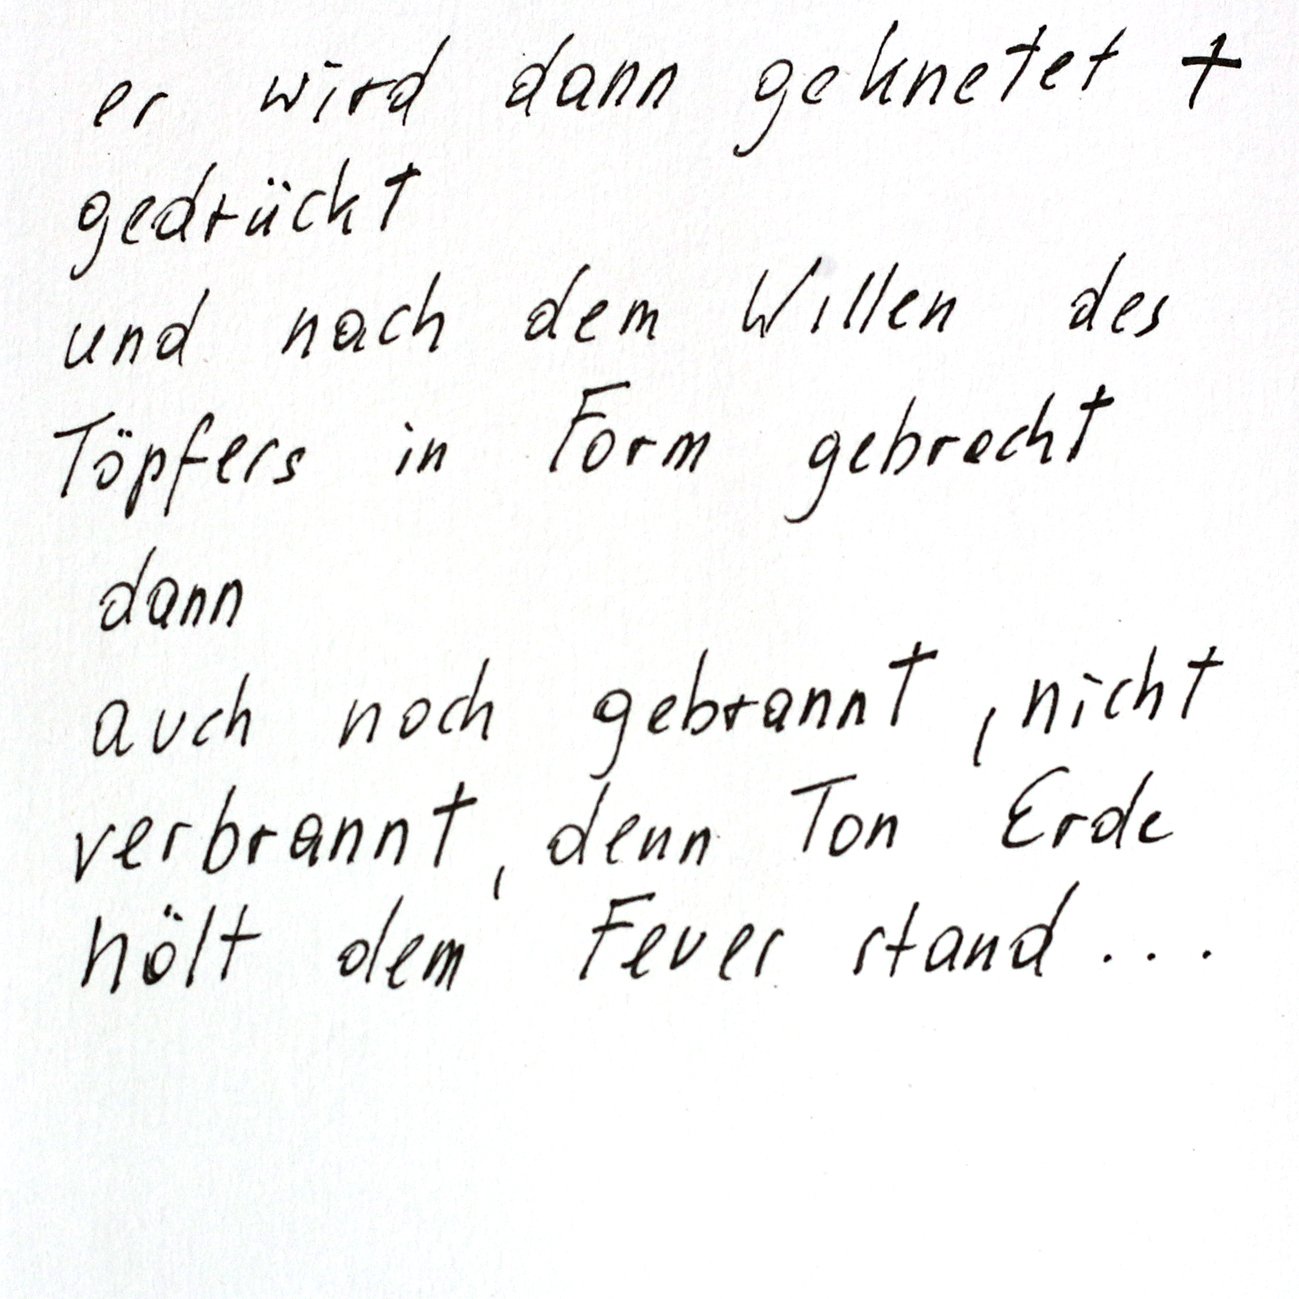 er wird dann geknetet +
gedrückt
und nach dem Willen des
Töpfers in Form gebracht
dann
auch noch gebrannt, nicht
verbrannt, denn Ton Erde
hält dem Feuer stand...